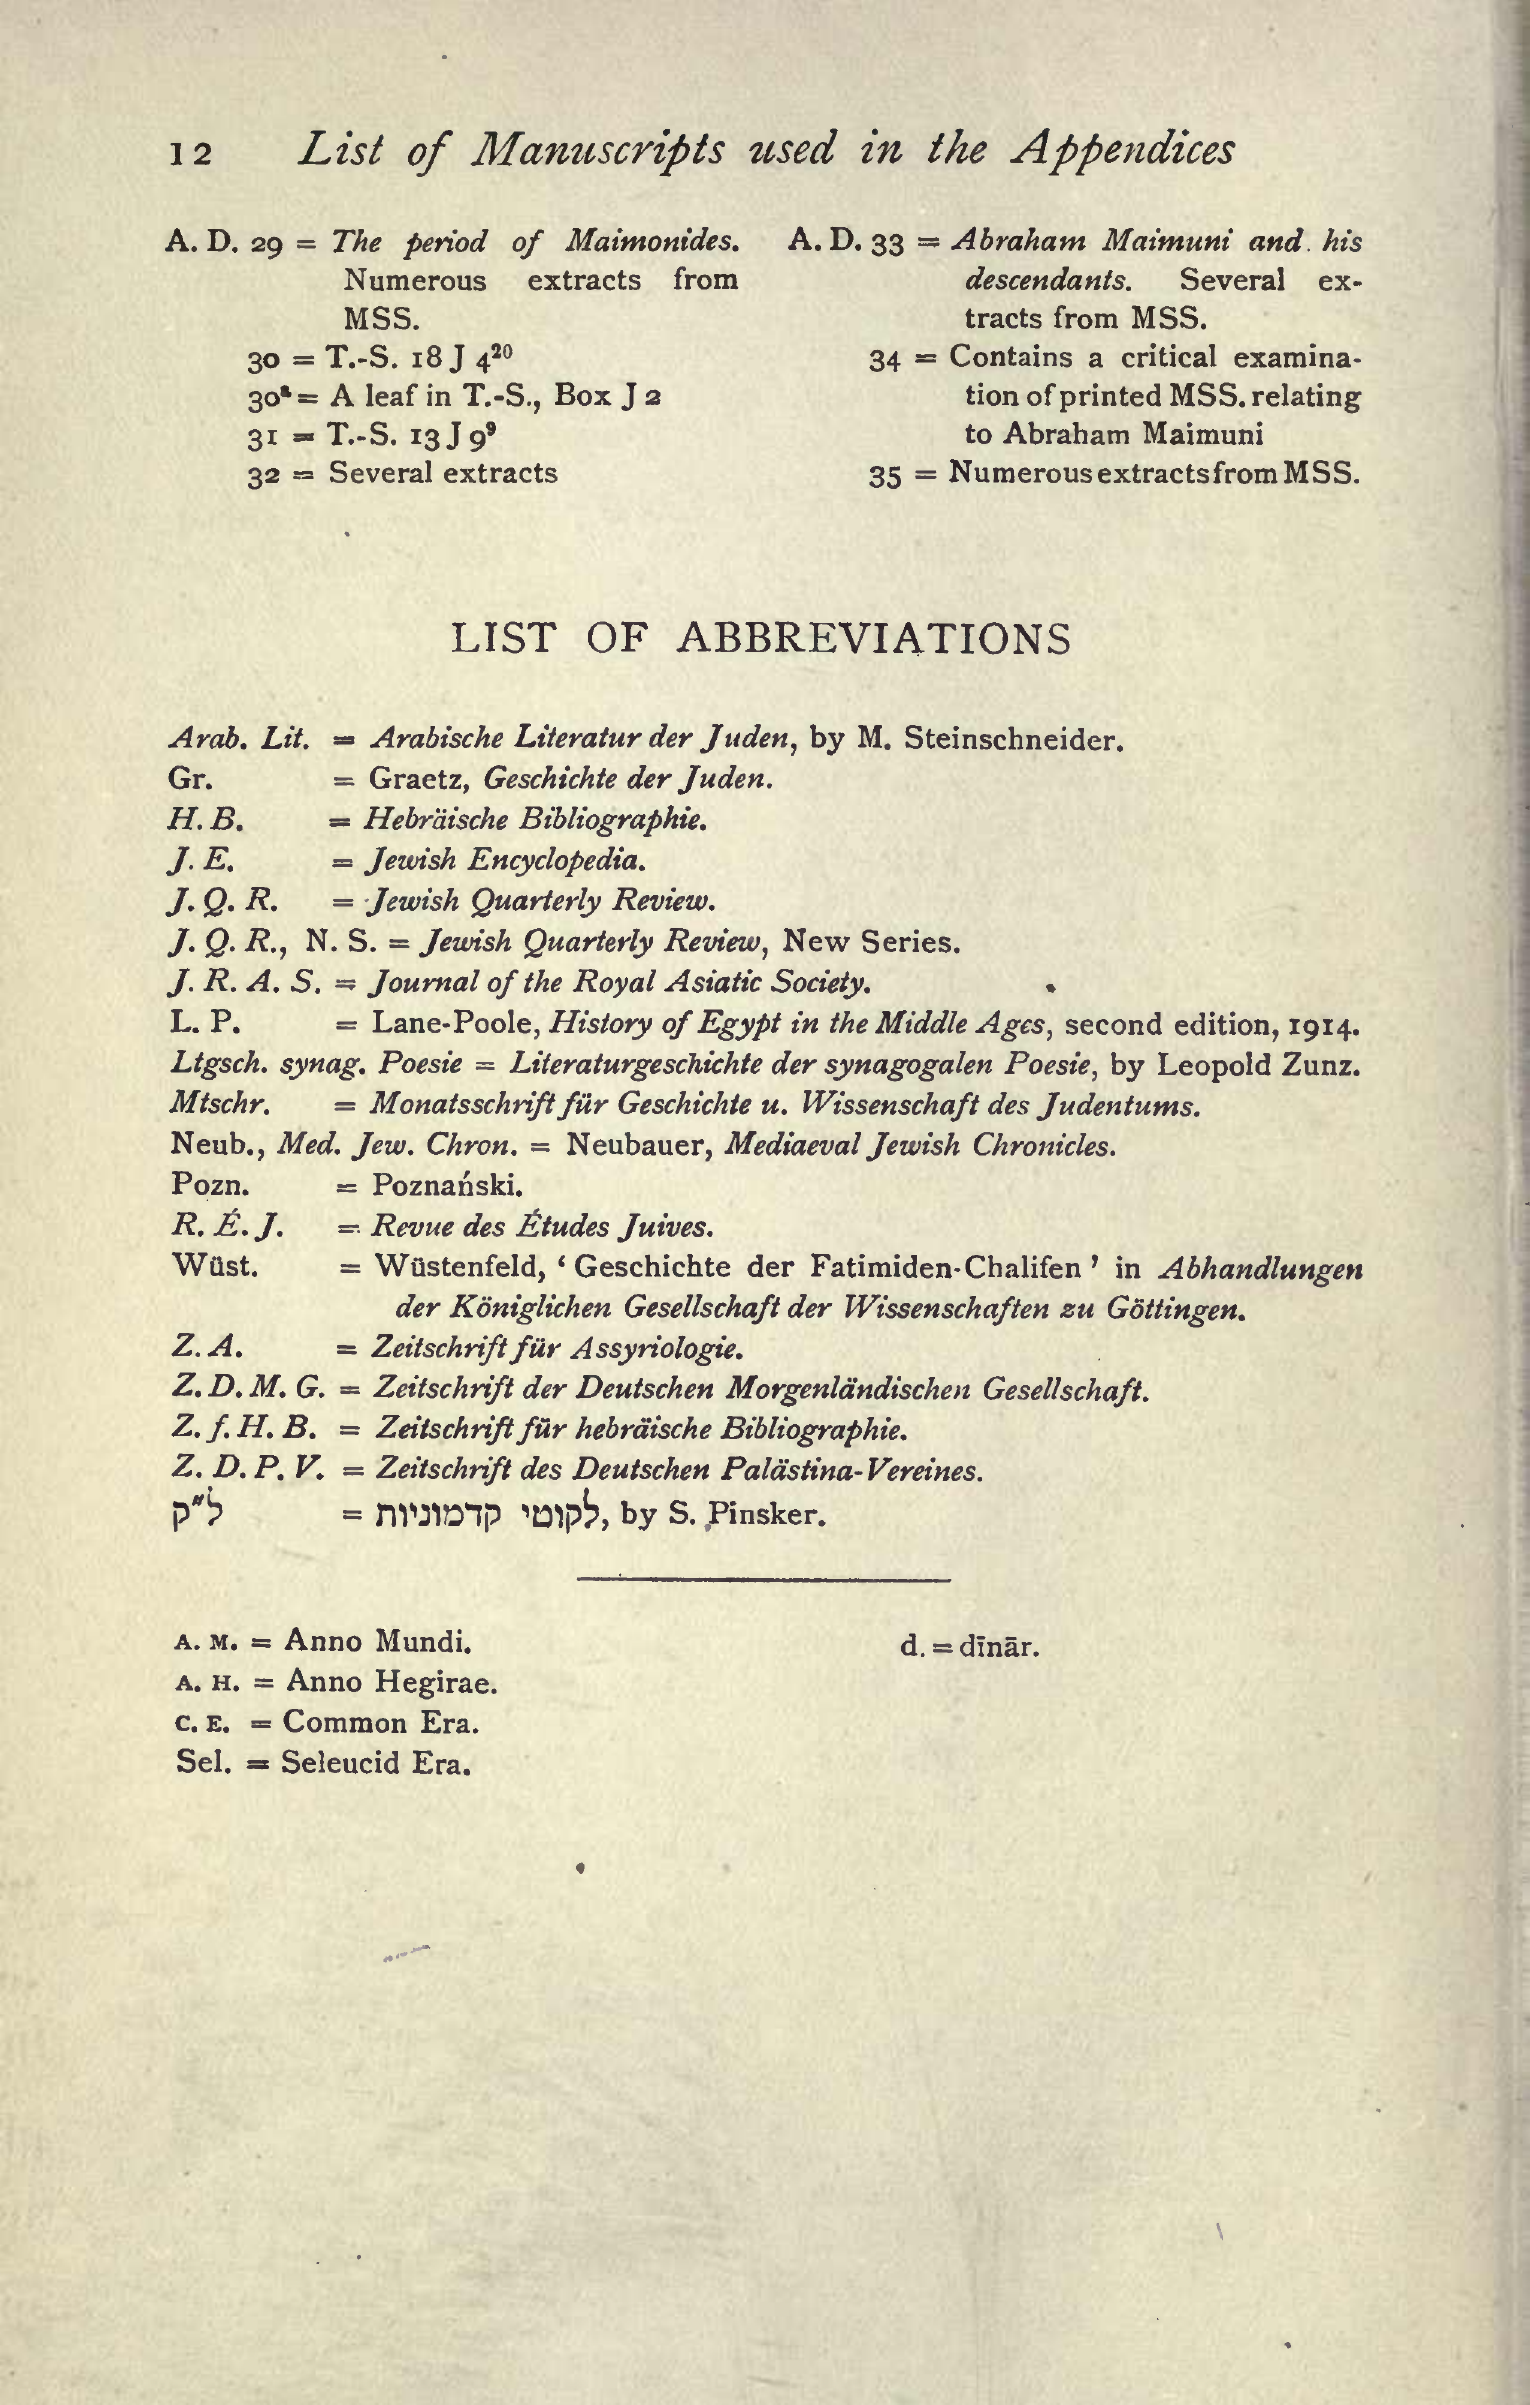 12 List of Manuscripts used in the Appendices
A. D. 29 = The period of Maimonides.
Numerous extracts from
MSS.
30 = T.-S. 18 J 4²⁰
30ᵃ = A leaf in T.-S., Box J 2
31 = T.-S. 13 J 9⁹
32 = Several extracts
A. D. 33 = Abraham Maimuni and his
descendants. Several ex-
tracts from MSS.
34 = Contains a critical examina-
tion of printed MSS. relating
to Abraham Maimuni
35 = Numerous extracts from MSS.
LIST OF ABBREVIATIONS
Arab. Lit. = Arabische Literatur der Juden, by M. Steinschneider.
Gr. = Graetz, Geschichte der Juden.
H. B. = Hebräische Bibliographie.
J. E. = Jewish Encyclopedia.
J. Q. R. = Jewish Quarterly Review.
J. Q. R., N. S. = Jewish Quarterly Review, New Series.
J. R. A. S. = Journal of the Royal Asiatic Society.
L. P. = Lane-Poole, History of Egypt in the Middle Ages, second edition, 1914.
Ltgsch. synag. Poesie = Literaturgeschichte der synagogalen Poesie, by Leopold Zunz.
Mtschr. = Monatsschrift für Geschichte u. Wissenschaft des Judentums.
Neub., Med. Jew. Chron. = Neubauer, Mediaeval Jewish Chronicles.
Pozn. = Poznański.
R. É. J. = Revue des Études Juives.
Wüst. = Wüstenfeld, ‘ Geschichte der Fatimiden-Chalifen ’ in Abhandlungen
der Königlichen Gesellschaft der Wissenschaften zu Göttingen.
Z. A. = Zeitschrift für Assyriologie.
Z. D. M. G. = Zeitschrift der Deutschen Morgenländischen Gesellschaft.
Z. f. H. B. = Zeitschrift für hebräische Bibliographie.
Z. D. P. V. = Zeitschrift des Deutschen Palästina-Vereines.
ל״ק = לקוטי קדמוניות, by S. Pinsker.
A. M. = Anno Mundi.
A. H. = Anno Hegirae.
C. E. = Common Era.
Sel. = Seleucid Era.
d. = dīnār.